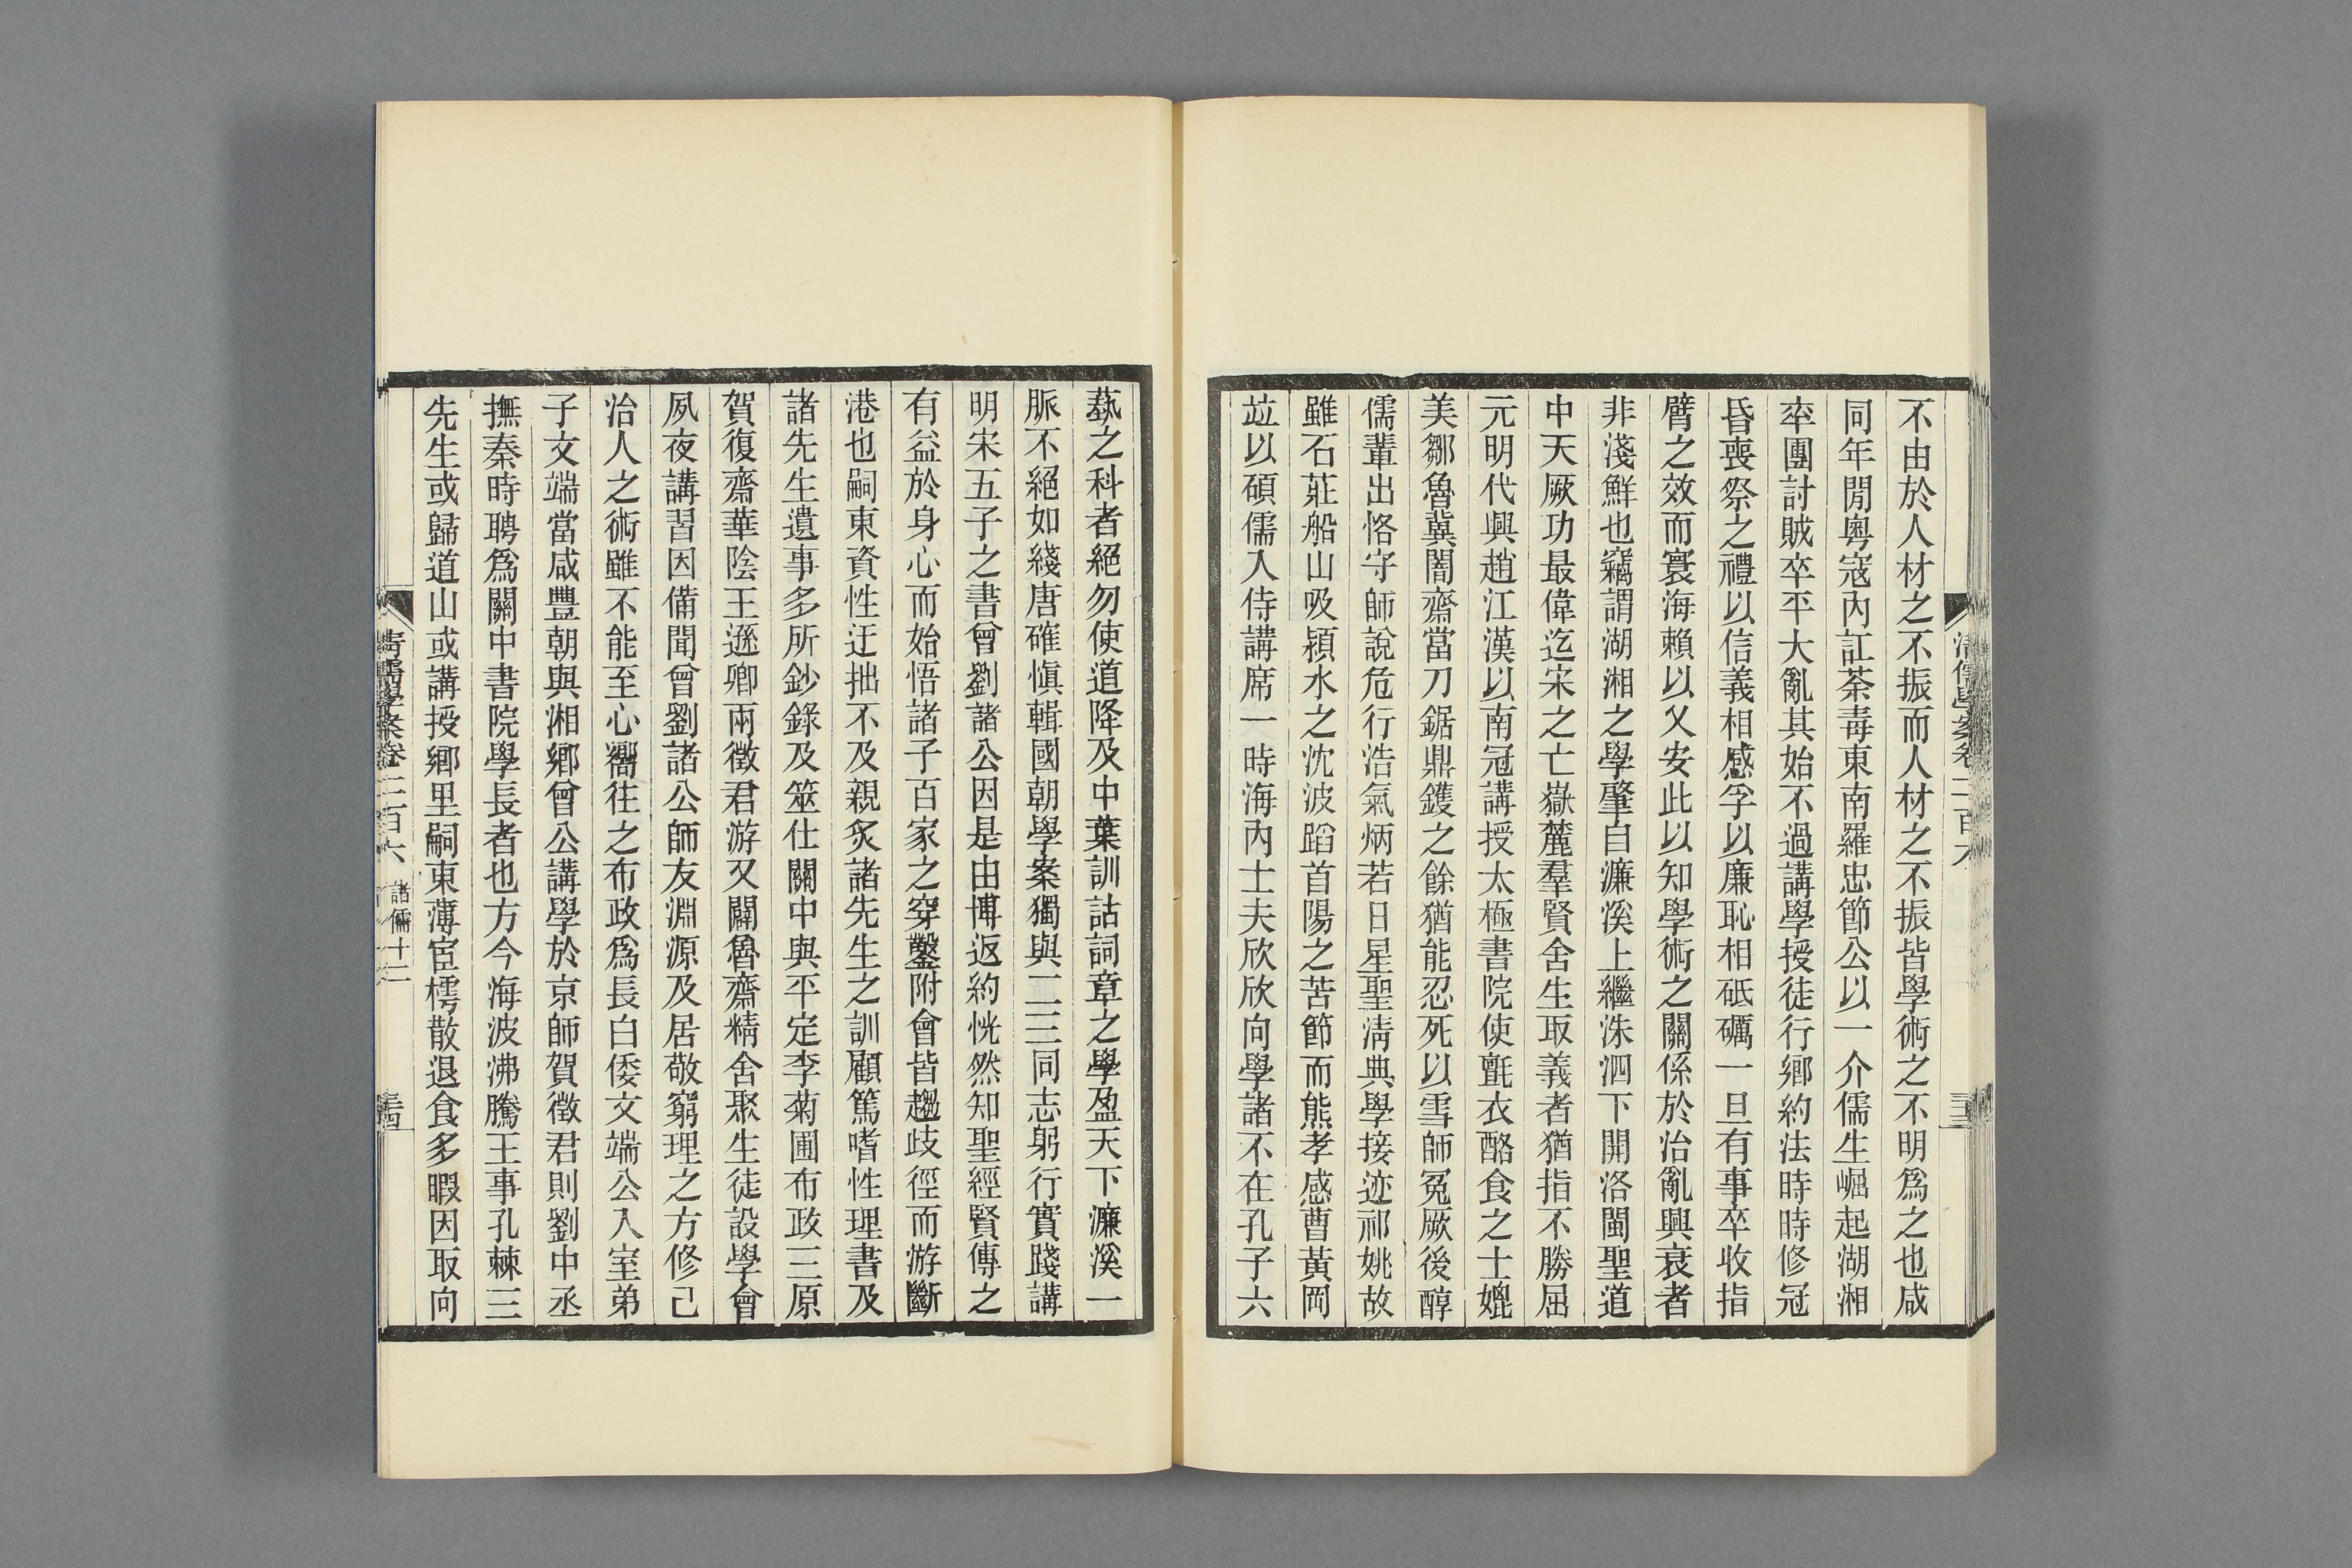 不由於人材之不振而人材之不振皆學術之不明爲之也咸
同年閒粵寇內訌荼毒東南羅忠節公以一介儒生崛起湖湘
率團討賊卒平大亂其始不過講學授徒行鄉約法時時修冠
昏喪祭之禮以信義相感孚以廉恥相砥礪一旦有事卒收指
臂之效而寰海賴以乂安此以知學術之關係於治亂興衰者
非淺鮮也竊謂湖湘之學肇自濂溪上繼洙泗下開洛閩聖道
中天厥功最偉迄宋之亡嶽麓羣賢舍生取義者猶指不勝屈
元明代興趙江漢以南冠講授太極書院使氈衣酪食之士媲
美鄒魯冀闇齋當刀鋸鼎鑊之餘猶能忍死以雪師冤厥後醇
儒輩出恪守師說危行浩氣炳若日星聖清典學接迹祁姚故
雖石莊船山吸潁水之沈波蹈首陽之苦節而熊孝感曹黃岡
竝以碩儒入侍講席一時海內士夫欣欣向學諸不在孔子六
清儒學案卷二百六
三三
蓺之科者絕勿使道降及中葉訓詁詞章之學盈天下濂溪一
脈不絕如綫唐確愼輯國朝學案獨與二三同志躬行實踐講
明宋五子之書曾劉諸公因是由博返約恍然知聖經賢傳之
有益於身心而始悟諸子百家之穿鑿附會皆趨歧徑而游斷
港也嗣東資性迂拙不及親炙諸先生之訓顧篤嗜性理書及
諸先生遺事多所鈔錄及筮仕關中與平定李菊圃布政三原
賀復齋華陰王遜卿兩徵君游又闢魯齋精舍聚生徒設學會
夙夜講習因備聞曾劉諸公師友淵源及居敬窮理之方修己
治人之術雖不能至心嚮往之布政爲長白倭文端公入室弟
子文端當咸豐朝與湘鄉曾公講學於京師賀徵君則劉中丞
撫秦時聘爲關中書院學長者也方今海波沸騰王事孔棘三
先生或歸道山或講授鄉里嗣東薄宦樗散退食多暇因取向
清儒學案卷二百六 諸儒十二
三四